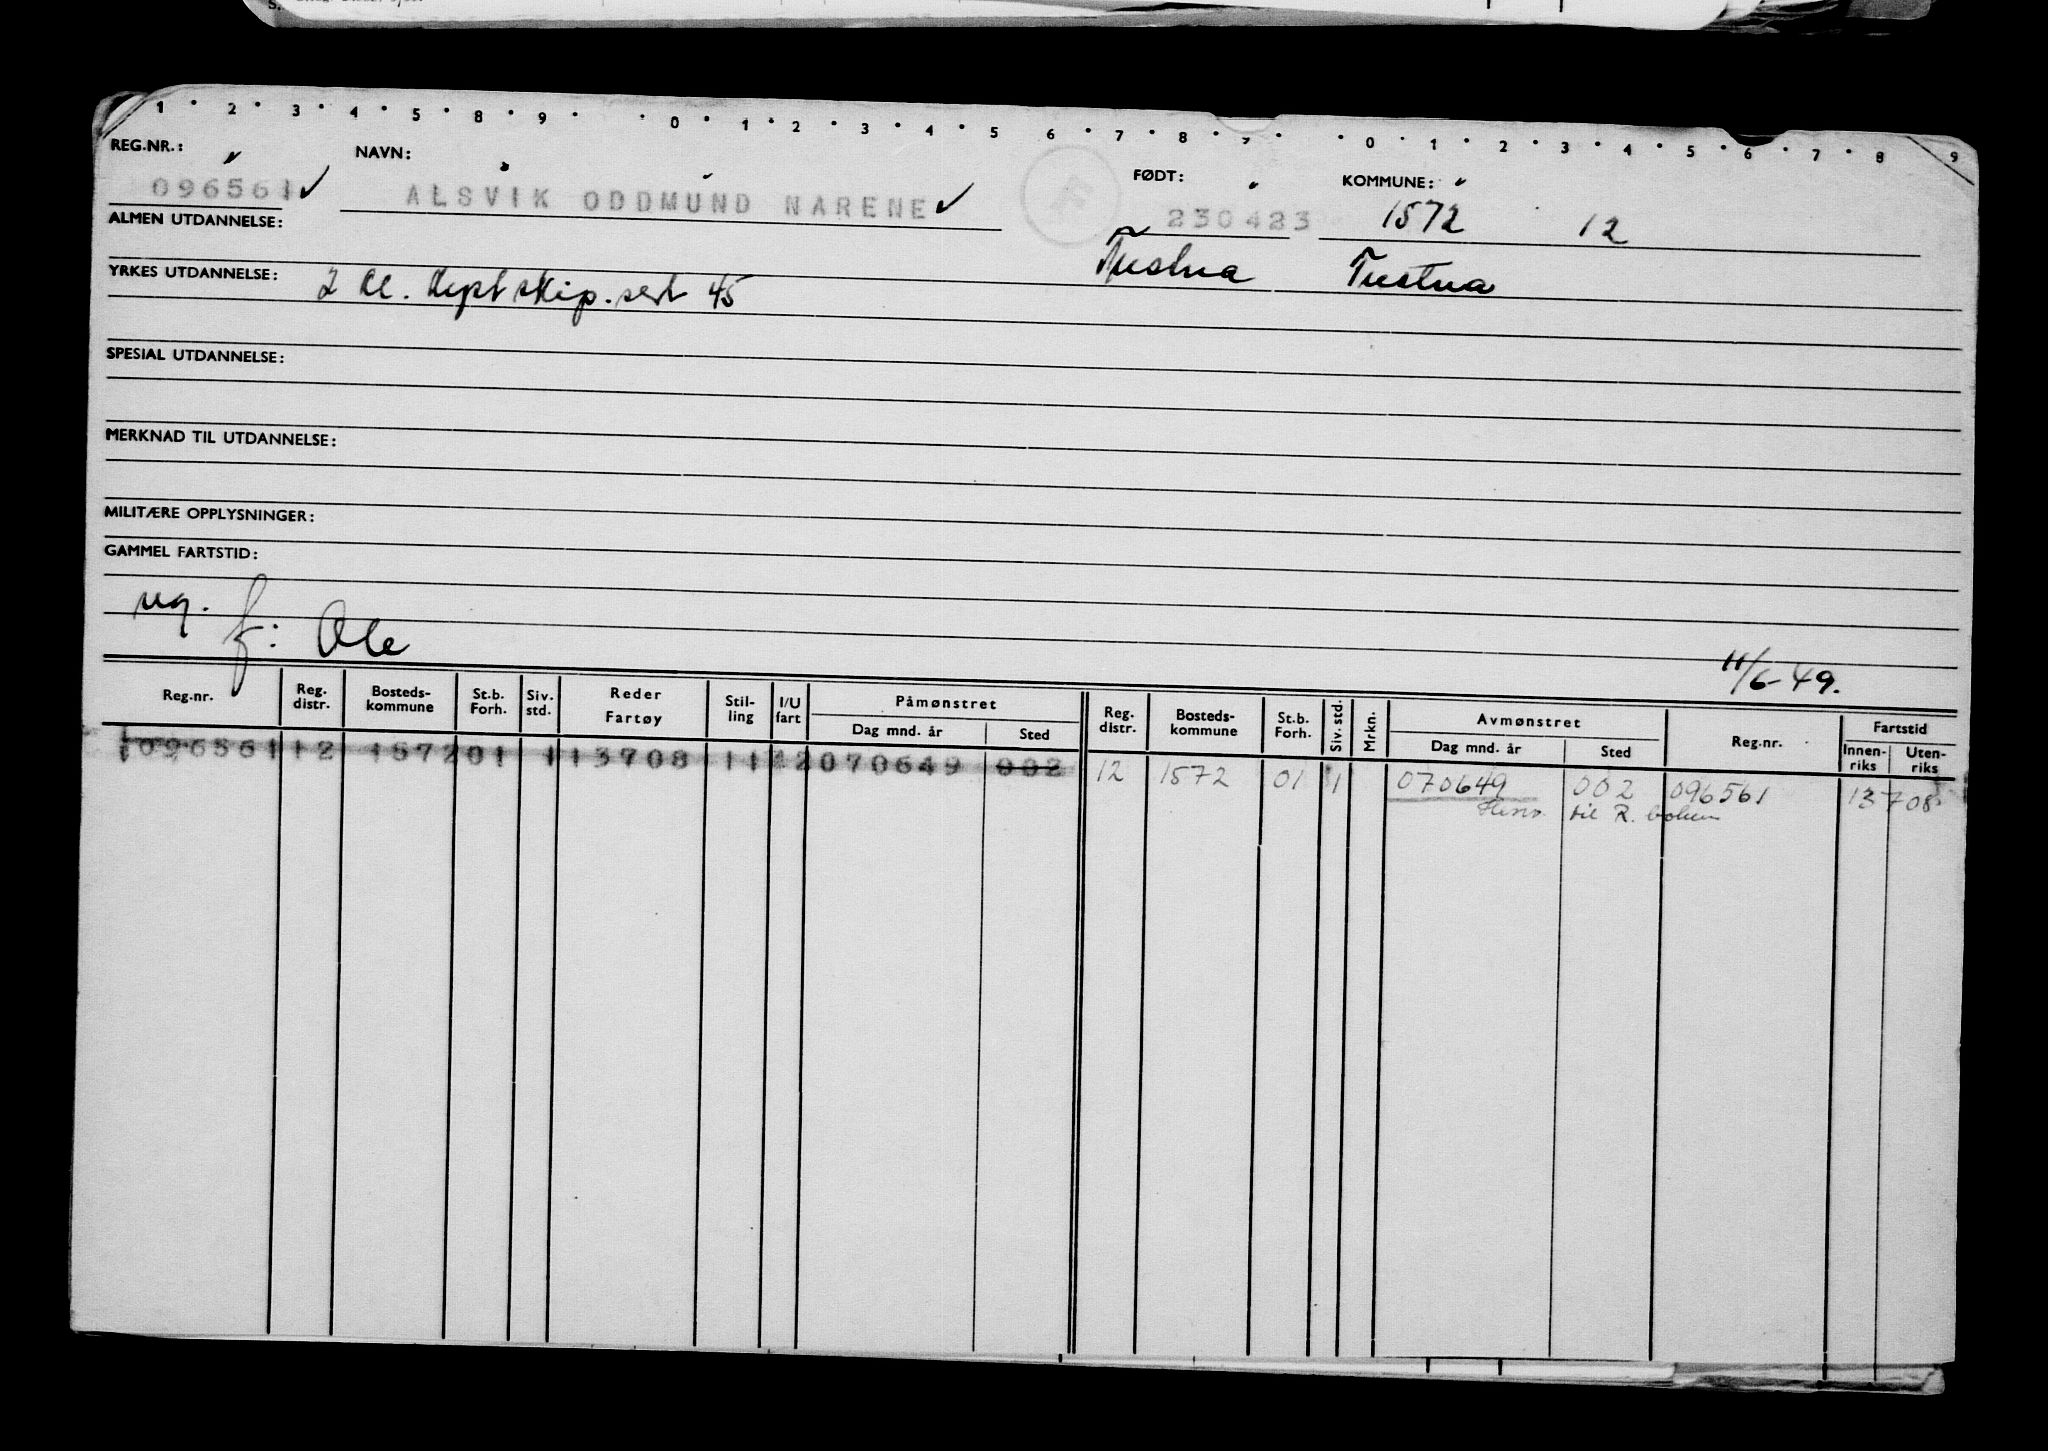 1 · 2 · 3 · 4 · 5 · 8 · 9 · · 0 · 1 · 2 · 3 · 4 · 5 6 · 7 · 8 · 9 · · 0 · 1 · 2 · 3 · 4 · 5 · 6 · 7 · 8 9
REG.NR.: NAVN: FØDT: KOMMUNE:
096561 ✓ ALSVIK ODDMUND NARENE ✓ 230423 1572 12
ALMEN UTDANNELSE: Tustna Tustna
YRKES UTDANNELSE: 2 kl. kyst skip. sert 45
SPESIAL UTDANNELSE:
MERKNAD TIL UTDANNELSE:
MILITÆRE OPPLYSNINGER:
GAMMEL FARTSTID:
f: Ole
11/6-49.
Reg.nr. Reg. distr. Bosteds-kommune St.b. Forh. Siv. std. Reder Fartøy Stil-ling I/U fart Påmønstret Dag mnd. år Sted Reg. distr. Bosteds-kommune St.b. Forh. Siv. std. Mrkn. Avmønstret Dag mnd. år Sted Reg.nr. Fartstid Innen-riks Uten-riks
096561 12 1572 01 1 13708 11 22 070649 002 12 1572 01 1 070649 002 096561 13708
til R.